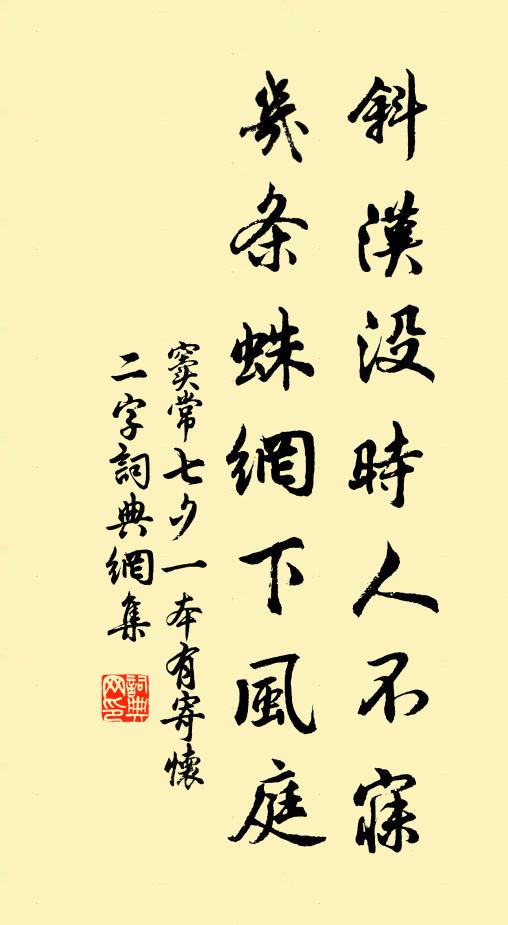 斜漢没時人不寐
幾条蛛網下風庭
竇常七夕一本有寄懷
二字詞典網集
詞典網印